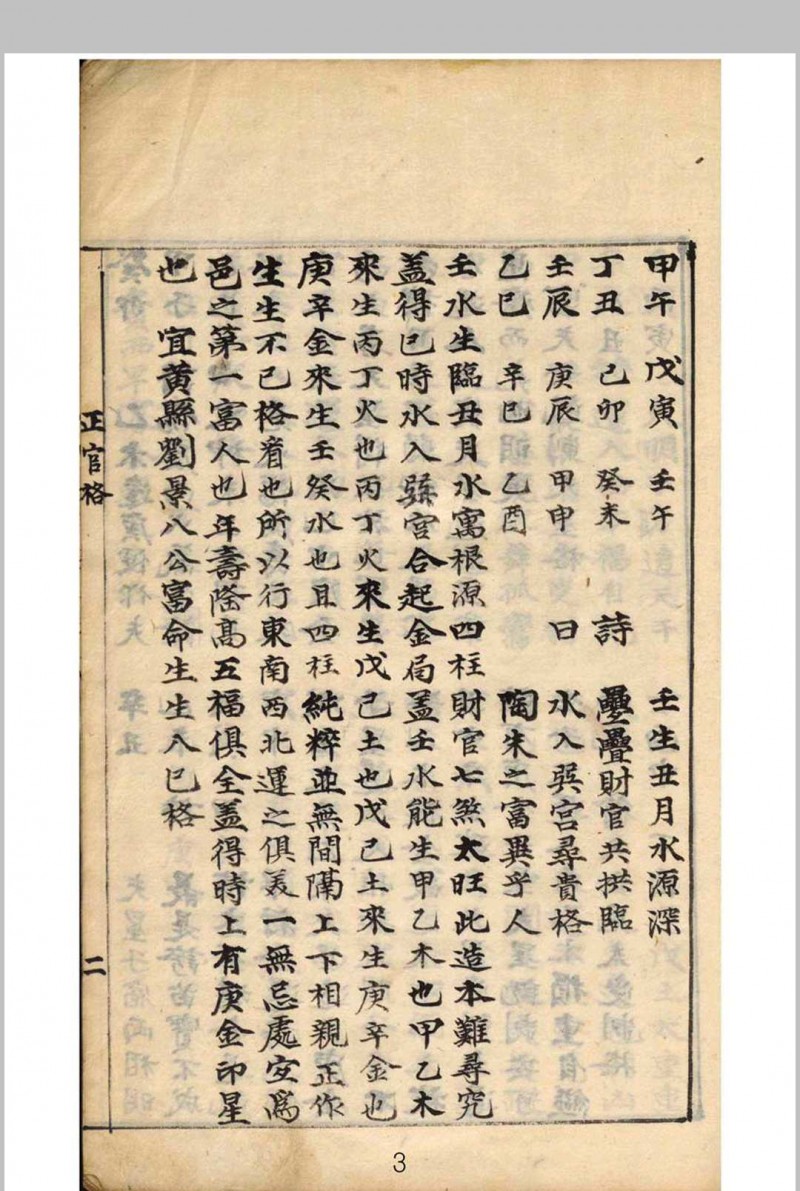 甲午 戊寅 壬午 壬生丑月水源深
丁丑 己卯 癸未 詩 疊疊財官共拱臨
壬辰 庚辰 甲申 曰 水入巽宮尋貴格
乙巳 辛巳 乙酉 陶朱之富異乎人
壬水生臨丑月水寓根源四柱財官七煞太旺此造本難尋究
蓋得巳時水入巽宮合起金局蓋壬水能生甲乙木也甲乙木
來生丙丁火也丙丁火來生戊己土也戊己土來生庚辛金也
庚辛金來生壬癸水也且四柱純粹並無間隔上下相親正作
生生不已格看也所以行東南西北運之俱美一無忌處安為
邑之第一富人也年壽隆高五福俱全蓋得時上有庚金印星
也 宜黃縣劉景八公富命生生八巳格
正官格 二
3